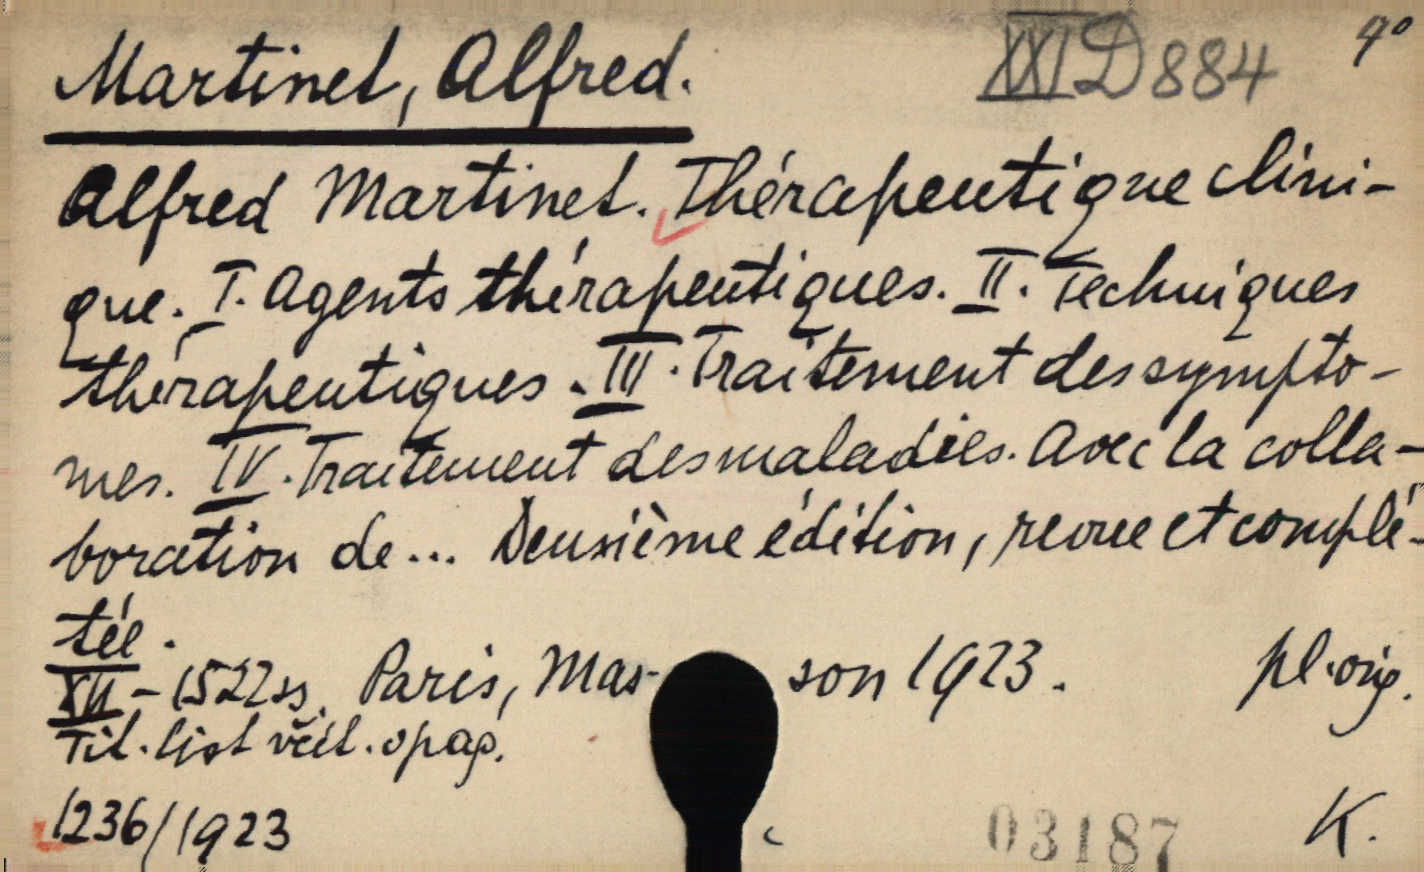 Martinet, Alfred. XXI D 884 4°
Alfred Martinet. Thérapeutique clini-
que. I. Agents thérapeutiques. II. Techniques
thérapeutiques. III. Traitement des sympto-
mes. IV. Traitement des maladies. Avec la colla-
boration de... Deuxième édition, revue et complé-
tée.
XII - 1522 ss. Paris, Masson 1923. pl. orig.
Tit. list včít. opag.
1236/1923 03187 K.